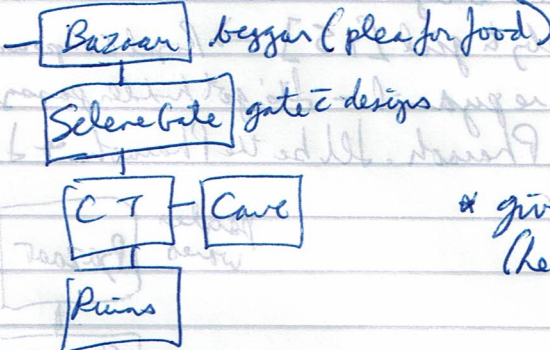 Bazaar beggar (plea for food)
Selene Gate gate c̄ designs
CT Cave
* giv
(he
Ruins